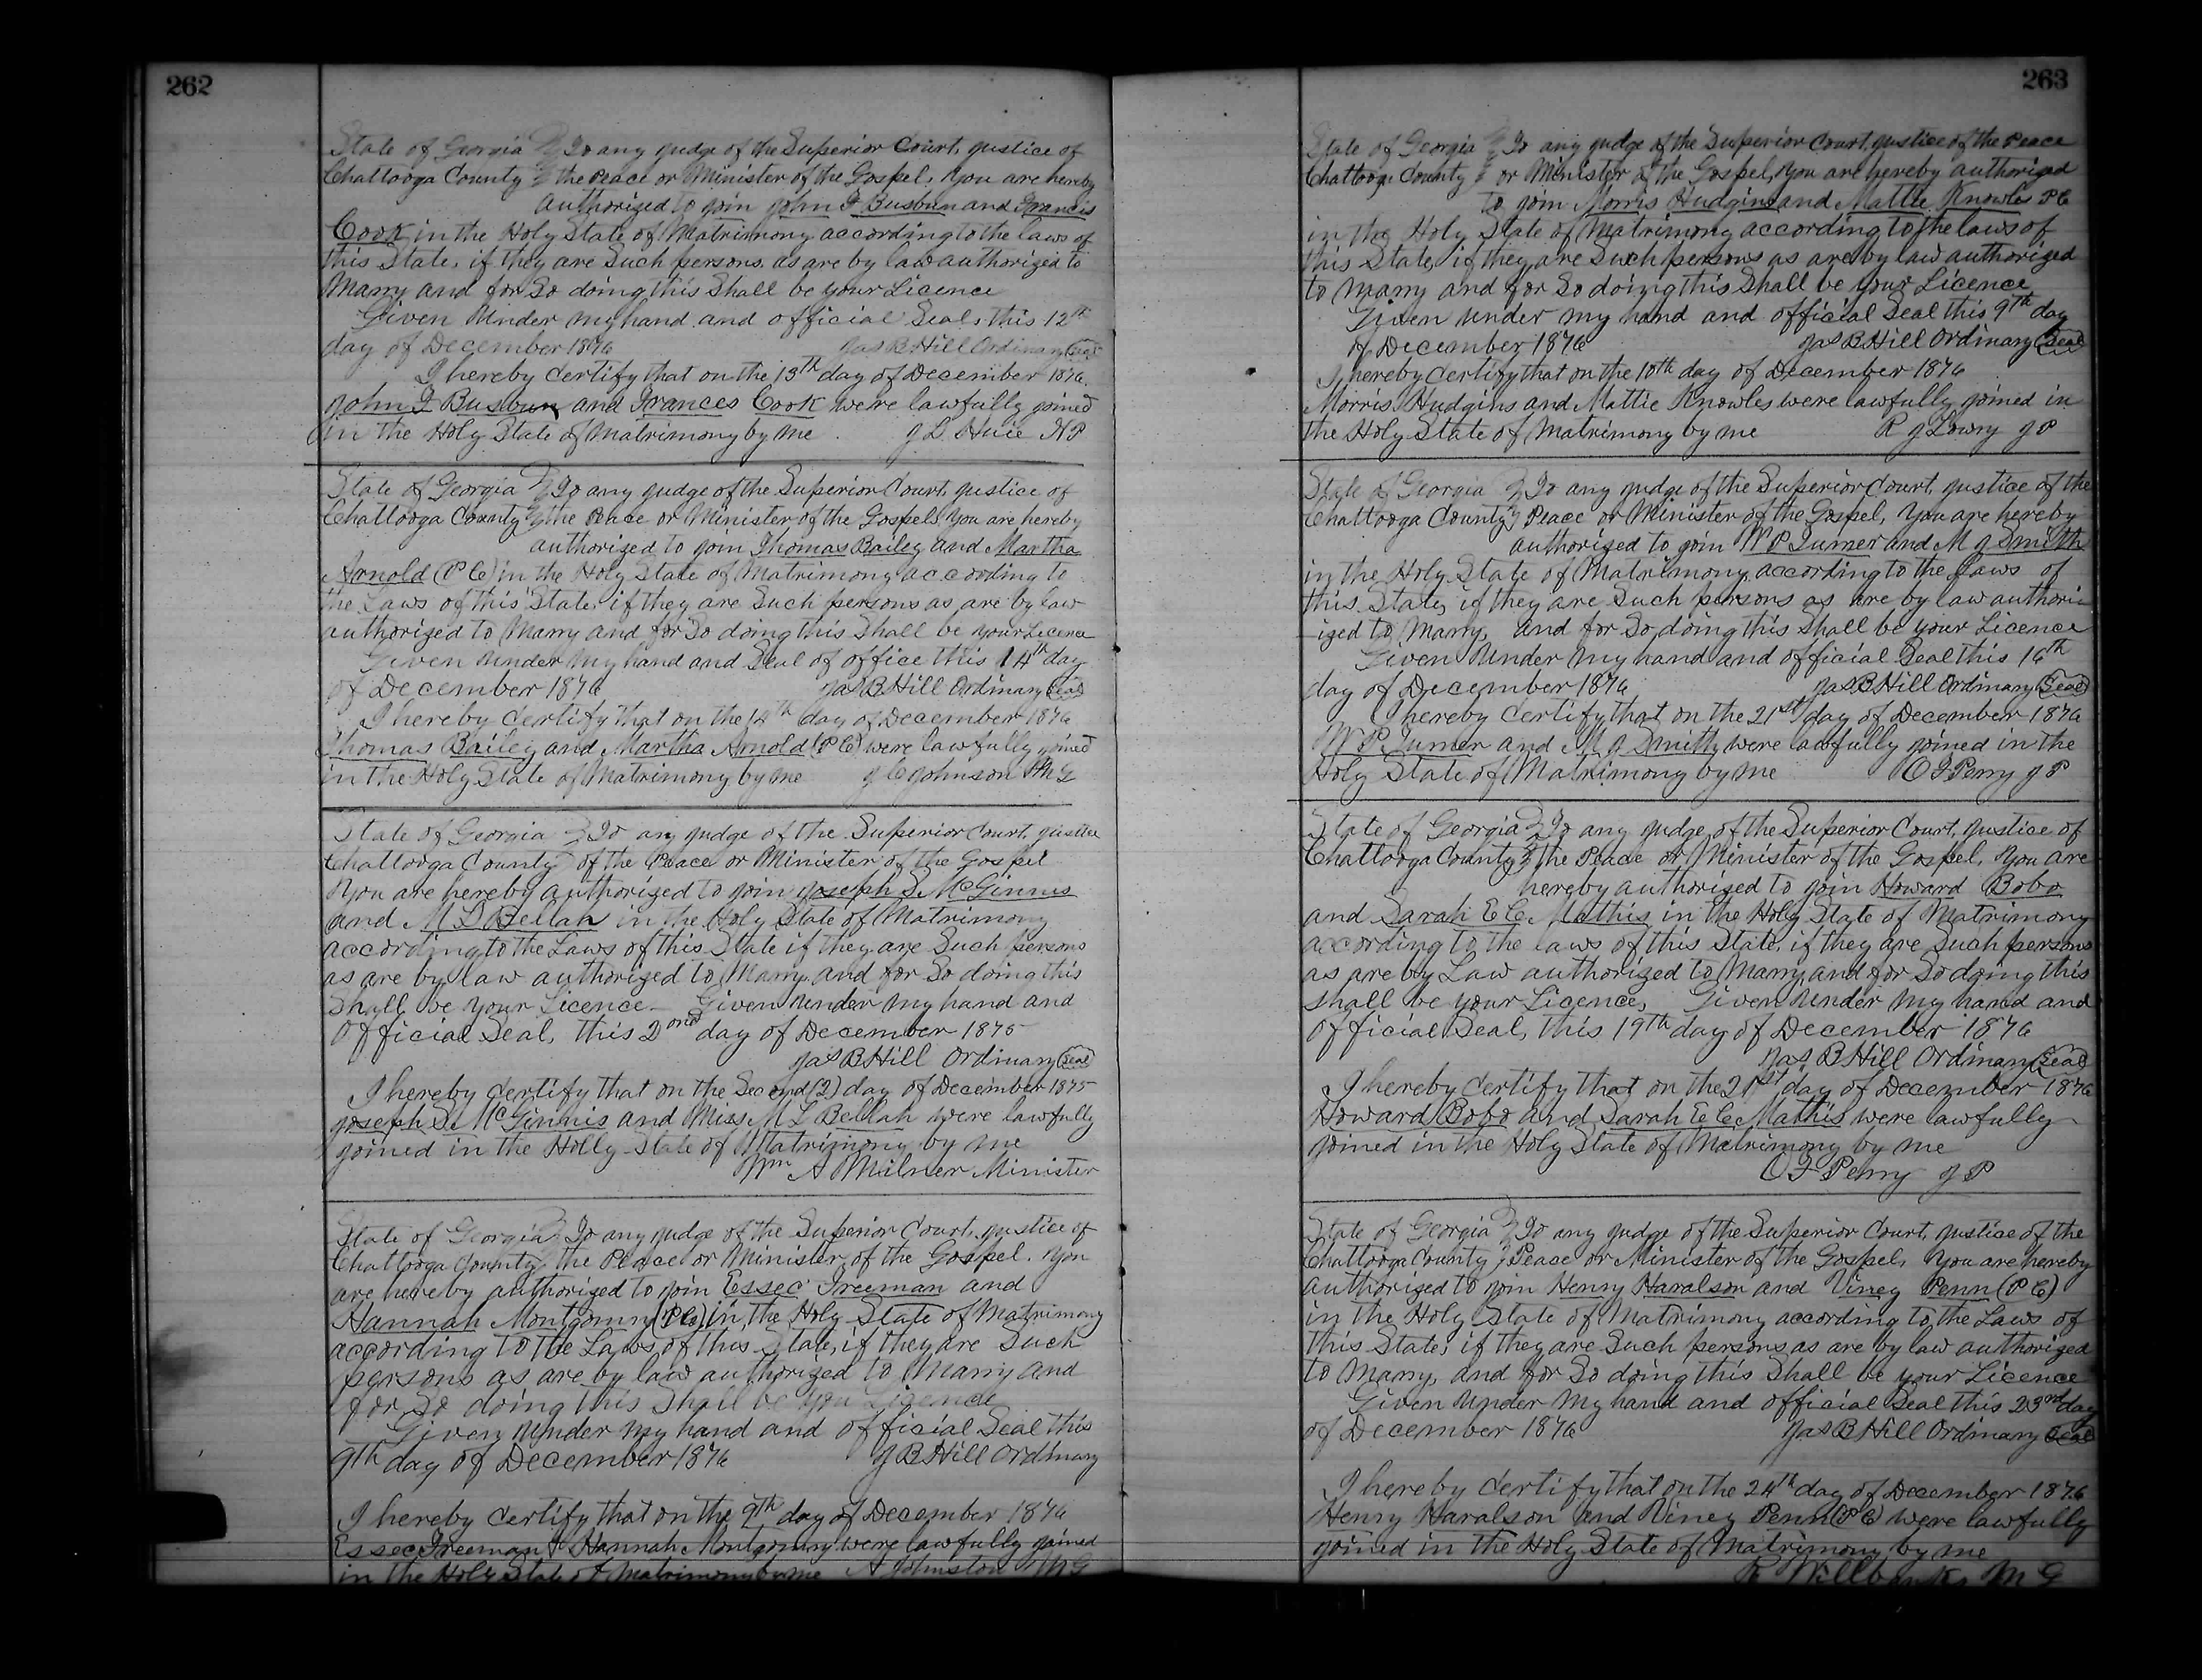 262
State of Georgia } To any judge of the Superior Court, justice of
Chattooga County } the Peace or Minister of the Gospel, You are hereby
authorized to join John F Busbun and Francis
Cook in the Holy State of Matrimony according to the laws of
this State, if they are Such persons as are by law authorized to
Marry and for So doing this Shall be your Licence
Given under my hand and official Seal, this 12th
day of December 1876 Jas B Hill Ordinary Seal
I hereby certify that on the 13th day of December 1876
John F Busbun and Frances Cook were lawfully joined
in the Holy State of Matrimony by me J L Huie N P
State of Georgia } To any judge of the Superior Court, justice of
Chattooga County } the Peace or Minister of the Gospel, You are hereby
authorized to join Thomas Bailey and Martha
Arnold (P C) in the Holy State of Matrimony according to
the Laws of this State, if they are Such persons as are by law
authorized to Marry and for So doing this Shall be your Licence
Given under my hand and Seal of office this 14th day
of December 1876 Jas B Hill Ordinary Seal
I hereby certify that on the 14th day of December 1876
Thomas Bailey and Martha Arnold (P C) were lawfully joined
in the Holy State of Matrimony by me J C Johnson M G
State of Georgia } To any judge of the Superior Court, justice
Chattooga County } of the Peace or Minister of the Gospel
You are hereby authorized to join Joseph S McGinnis
and M L Bellah in the Holy State of Matrimony
according to the Laws of this State if they are Such persons
as are by law authorized to Marry and for So doing this
Shall be your Licence Given under my hand and
Official Seal, this 2ond day of December 1875
Jas B Hill Ordinary Seal
I hereby certify that on the Second (2) day of December 1875
Joseph S McGinnis and Miss M L Bellah were lawfully
joined in the Holly State of Matrimony by me
Wm A Milner Minister
State of Georgia } To any judge of the Superior Court, justice of
Chattooga County } the Peace or Minister of the Gospel. You
are hereby authorized to join Essec Freeman and
Hannah Montgomry (P C) in the Holy State of Matrimony
according to the Laws of this State, if they are Such
persons as are by law authorized to Marry and
for So doing this Shall be you Licence
Given under my hand and official Seal this
9th day of December 1876 J B Hill Ordinary
I hereby certify that on the 9th day of December 1876
Essec Freeman & Hannah Montgomry were lawfully joined
in the Holy State of Matrimony by me A Johnston M G
263
State of Georgia } To any judge of the Superior Court, justice of the Peace
Chattooga County } or Minister of the Gospel, You are hereby authorized
to join Morris Hudgins and Mattie Knowles P C
in the Holy State of Matrimony according to the laws of
this State, if they are Such persons as are by law authorized
to marry and for So doing this Shall be Your Licence
Given under my hand and official Seal this 9th day
of December 1876 Jas B Hill Ordinary Seal
I hereby certify that on the 10th day of December 1876
Morris Hudgins and Mattie Knowles were lawfully joined in
the Holy State of Matrimony by me R J Lowry J P
State of Georgia } To any judge of the Superior Court, justice of the
Chattooga County } Peace or Minister of the Gospel, You are hereby
authorized to join W P Turner and M J Smith
in the Holy State of Matrimony according to the laws of
this State, if they are Such persons as are by law authori-
ized to Marry, and for So doing this shall be your Licence
Given under my hand and official Seal this 16th
day of December 1876 Jas B Hill Ordinary Seal
I hereby certify that on the 21st day of December 1876
W P Turner and M J Smith were lawfully joined in the
Holy State of Matrimony by me O F Perry J P
State of Georgia } To any judge of the Superior Court, justice of
Chattooga County } the Peace or Minister of the Gospel, You are
hereby authorized to join Howard Bobo
and Sarah E C Mathis in the Holy State of Matrimony
according to the laws of this State, if they are Such persons
as are by Law authorized to Marry, and for So doing this
shall be your Licence, Given under my hand and
official Seal, this 19th day of December 1876
Jas B Hill Ordinary Seal
I hereby certify that on the 21st day of December 1876
Howard Bobo and Sarah E C Mathis were lawfully
joined in the Holy State of Matrimony by me
O F Perry J P
State of Georgia } To any judge of the Superior Court, justice of the
Chattooga County } Peace or Minister of the Gospel, You are hereby
authorized to join Henry Haralson and Viney Penn (P C)
in the Holy State of Matrimony according to the Laws of
this State, if they are Such persons as are by law authorized
to Marry, and for So doing this Shall be your Licence
Given under my hand and official Seal this 23rd day
of December 1876 Jas B Hill Ordinary Seal
I hereby certify that on the 24th day of December 1876
Henry Haralson and Viney Penn (P C) were lawfully
joined in the Holy State of Matrimony by me
R Willbanks M G